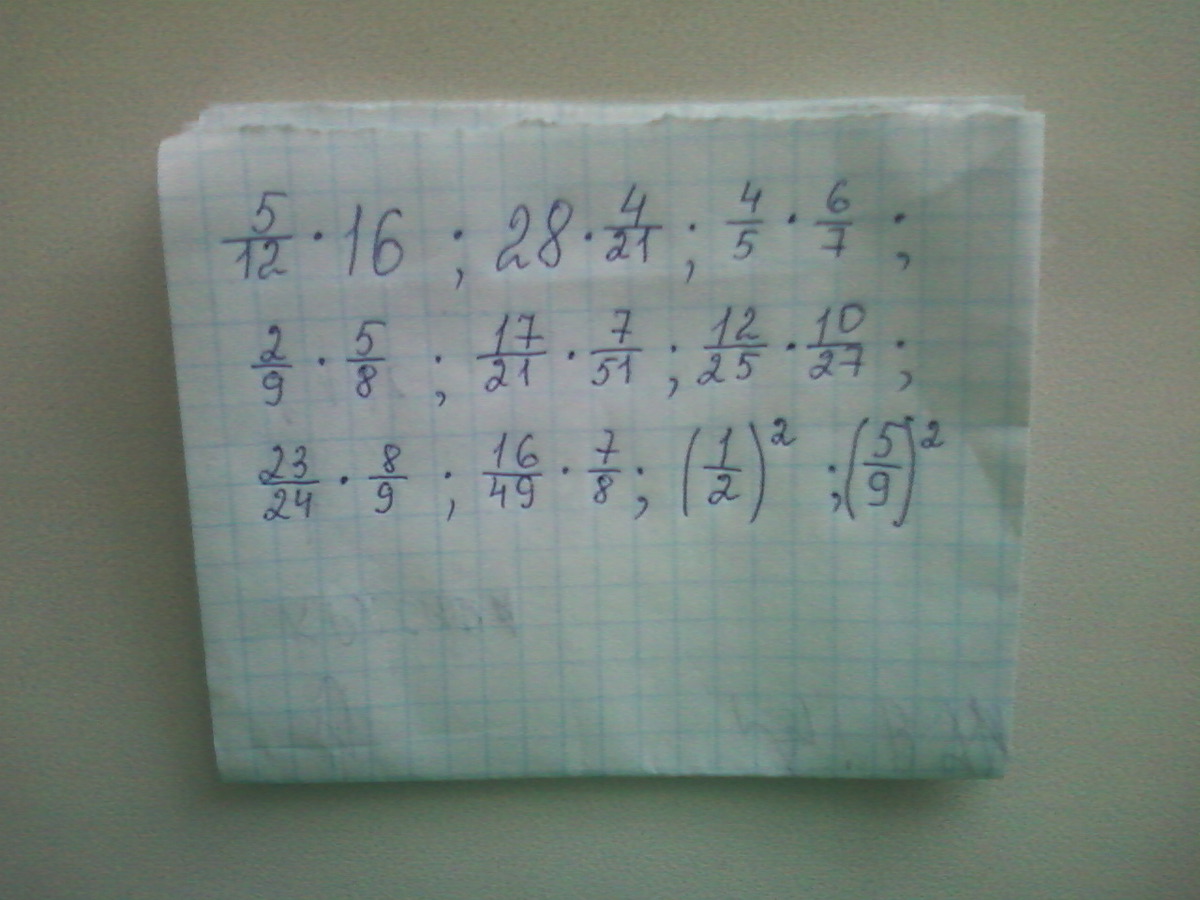 5/12 · 16 ; 28 · 4/21 ; 4/5 · 6/7 ;
2/9 · 5/8 ; 17/21 · 7/51 ; 12/25 · 10/27 ;
23/24 · 8/9 ; 16/49 · 7/8 ; (1/2)² ; (5/9)²